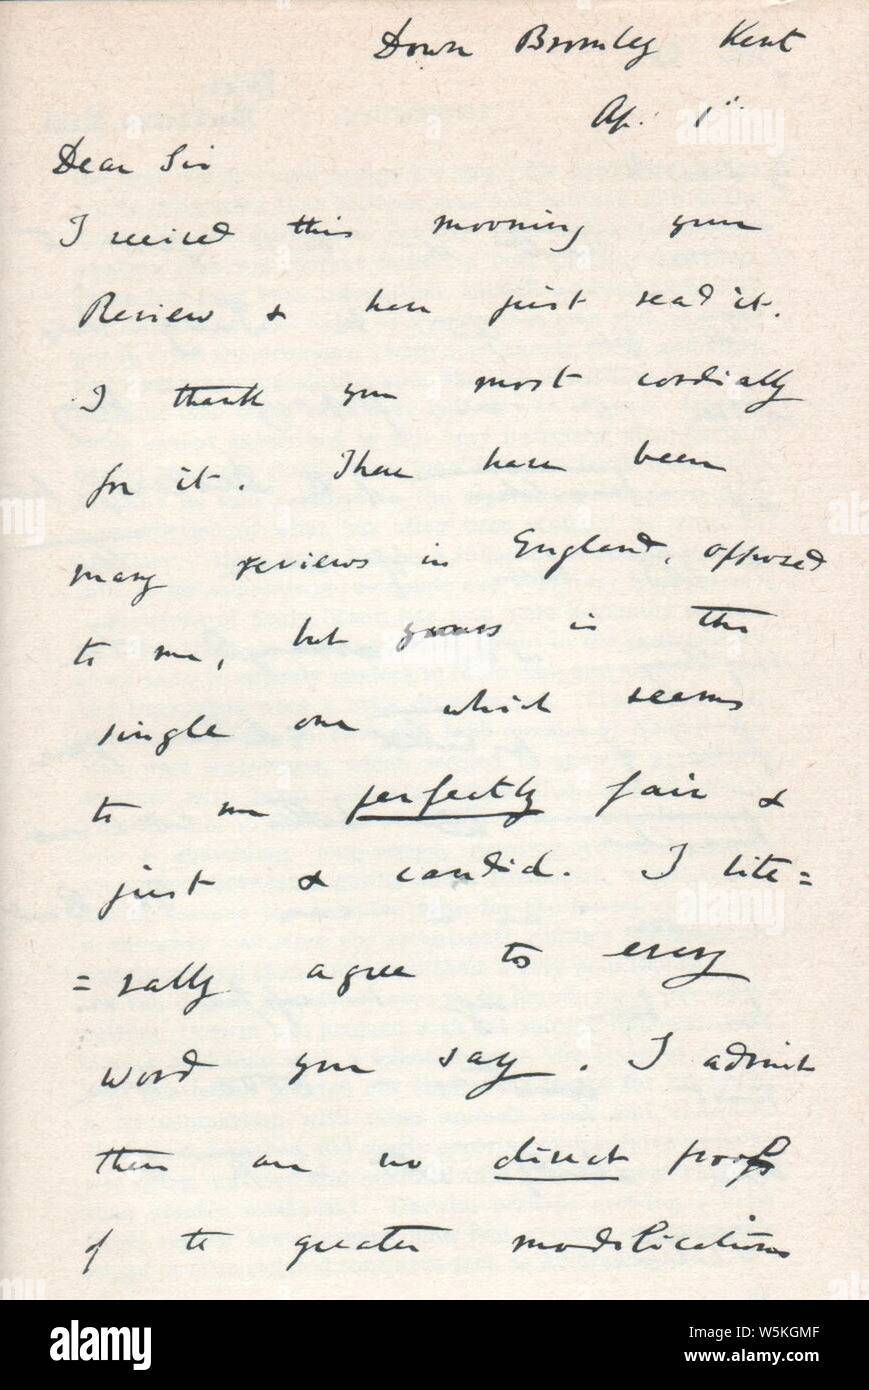 Down Bromley Kent
Ap. 1st
Dear Sir
I received this morning your
Review & have just read it.
I thank you most cordially
for it. There have been
many reviews in England, opposed
to me, but yours is the
single one which seems
to me perfectly fair &
just & candid. I lite=
=rally agree to every
word you say. I admit
there are no direct proofs
of the greater modifications
alamy
Image ID: W5KGMF
www.alamy.com